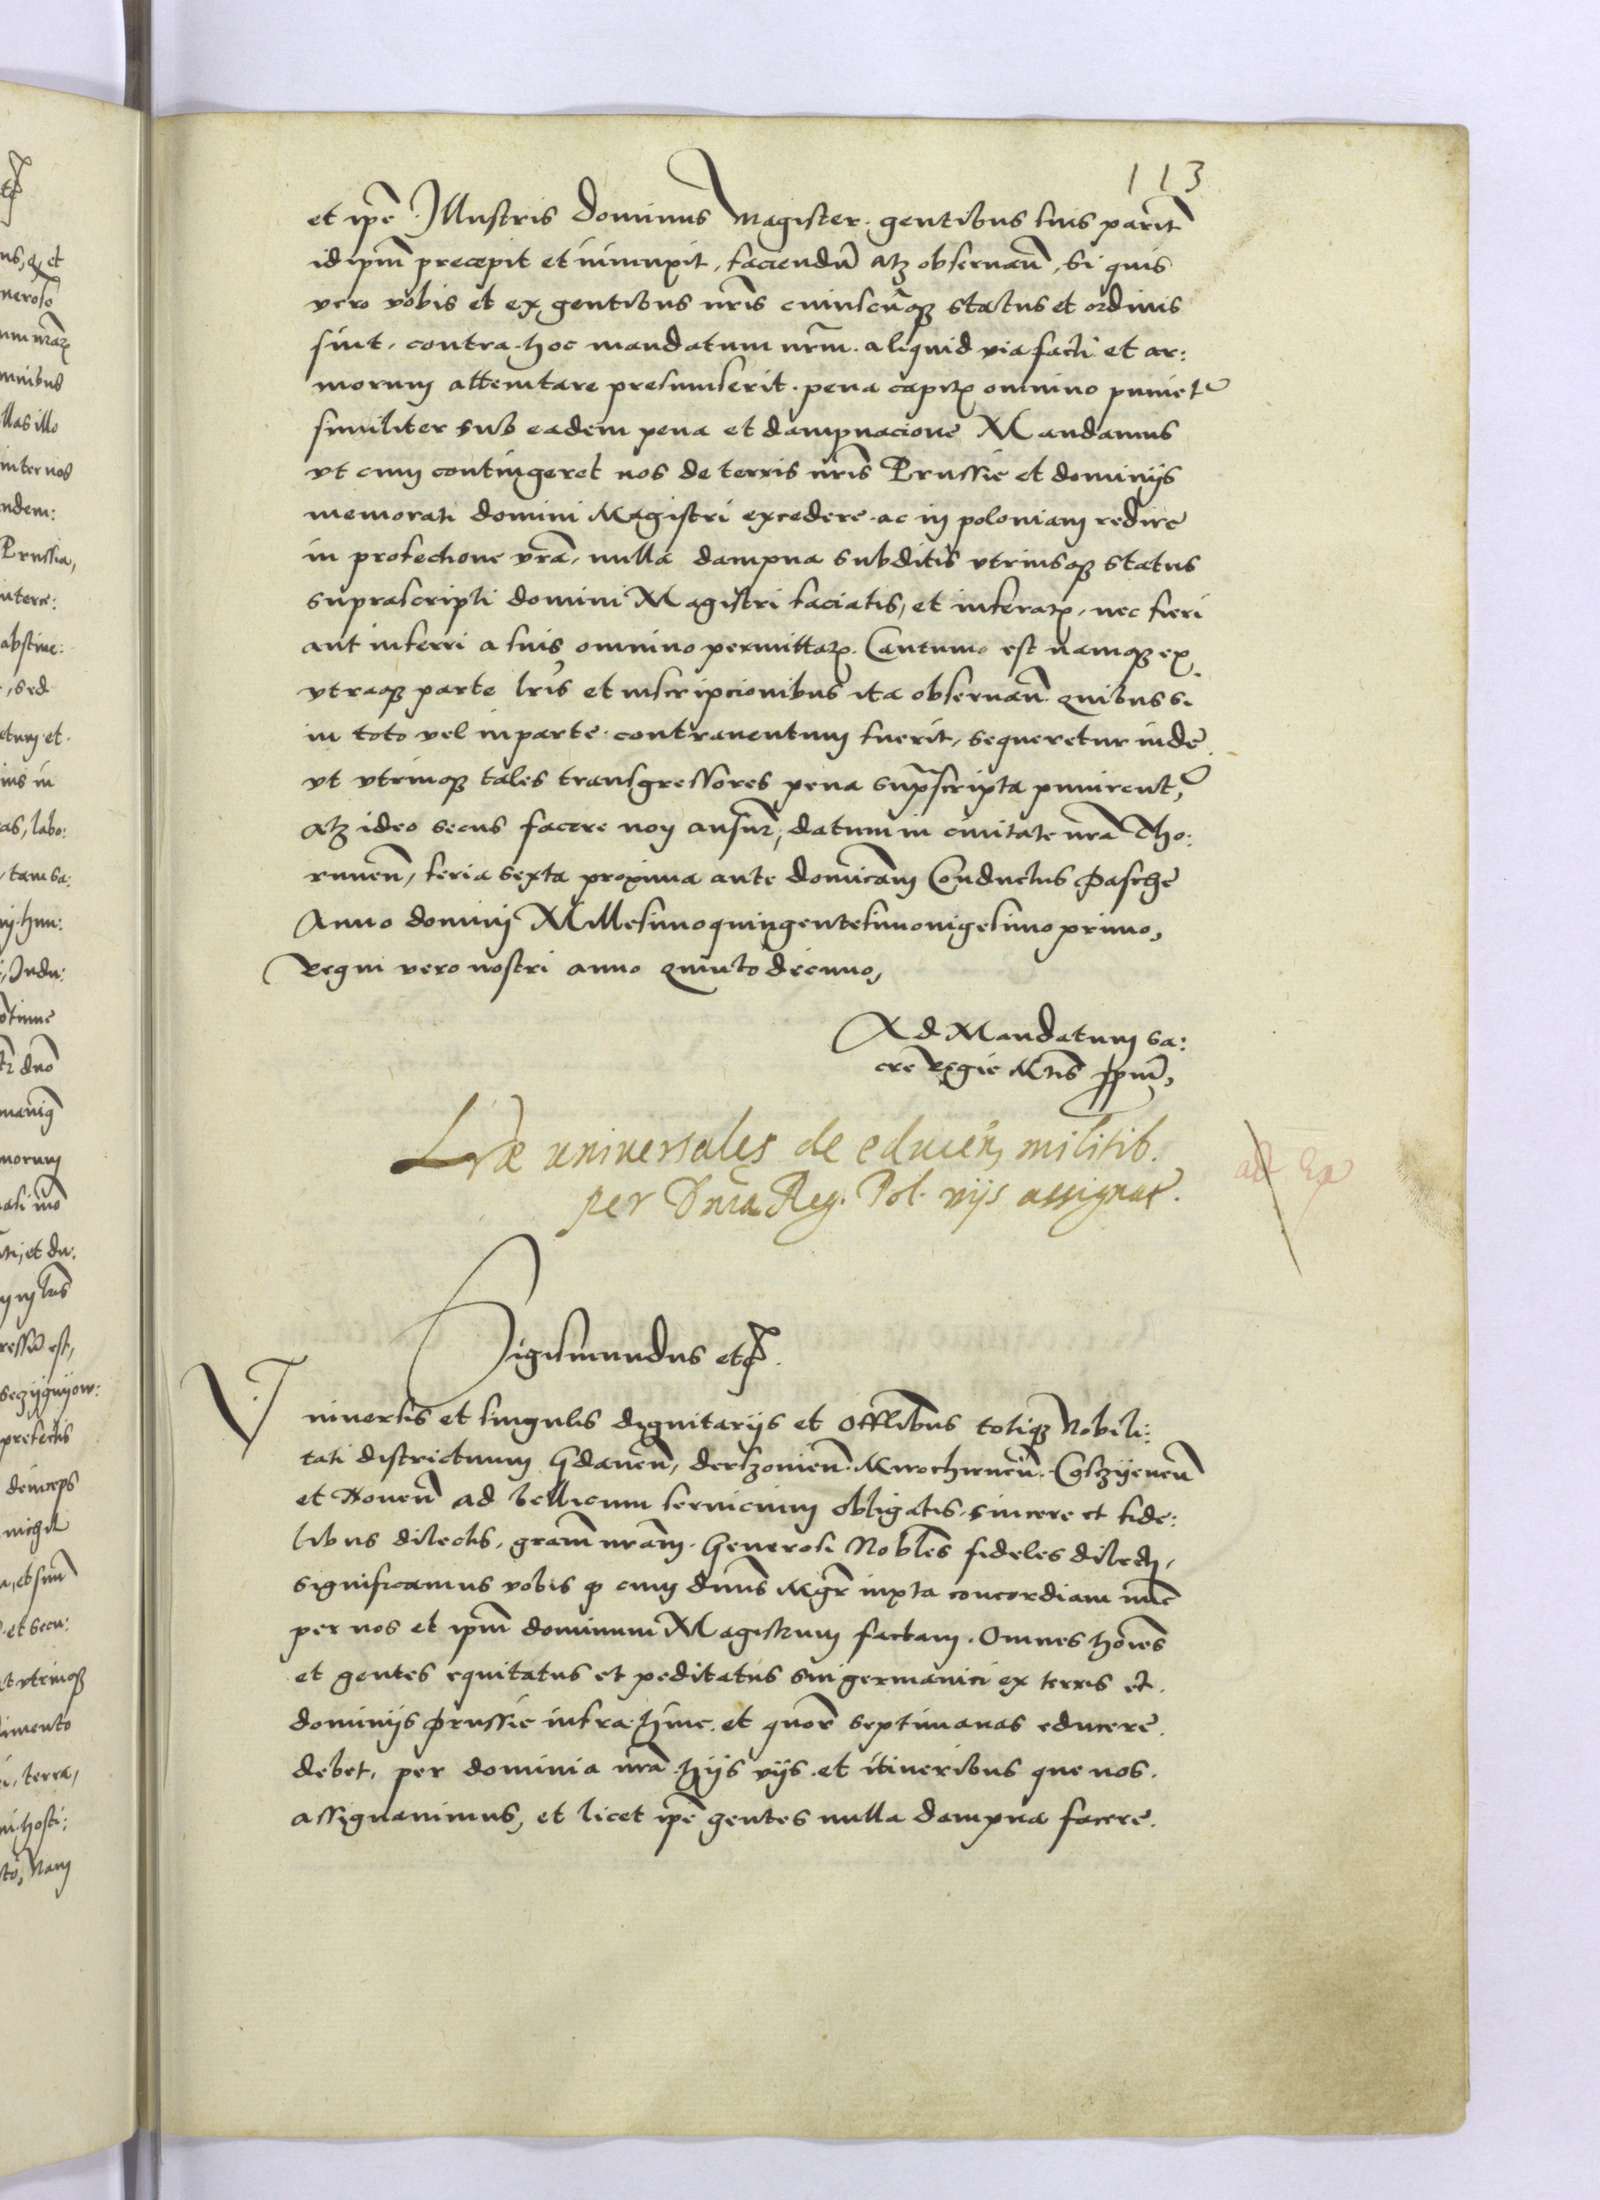 113
et ipē Illustris Dominus Magister gentibus suis parit̄
idipm̄ precepit et iniunxit, faciendū atꝫ obseruan̄, Si quis
vero vobis et ex gentibus nr̄is cuiuscūqꝫ status et ordinis
sint, contra hoc mandatum nr̄m aliquid via facti et ar:
morum attemtare presumserit, pena capitꝭ omnino puniet᷑
similiter sub eadem pena et dampnacione Mandamus
vt cum contingeret nos de terris nr̄is Prussie et dominijs
memorati domini Magistri excedere ac in poloniam redire
in profectione vrā, nulla dampna subditis vtriusqꝫ status
suprascripti domini Magistri faciatis, et inferatꝭ, nec fieri
aut inferri a suis omnino permittatꝭ. Cautum est namqꝫ ex
vtraqꝫ parte lr̄is et inscripcionibus ita obseruan̄ quibus si
in toto vel in parte contrauentum fuerit, sequeretur inde
vt vtrinqꝫ tales transgressores pena sup̄scripta punirent᷑,
atꝫ ideo secus facere non ausur̄, datum in ciuitate nr̄a Tho:
runen̄, feria sexta proxima ante dominicam Conductus Pasche
Anno domini Millesimoquingentesimouigesimo primo,
Regni vero nostri anno quinto decimo,
Ad Mandatum Sa:
cre Regie Mtis̄ ppm̄,
Lr̄æ universales de educēn militib.
per Dnia Reg. Pol. vijs assignat.
ad Ex
Sigismundus etc̄.
Vniuersis et singulis dignitarijs et Offlibus totiqꝫ Nobili:
tati districtuum Gdanen̄, derszouien̄ Mirochwnen̄ Coszyenen̄
et Nouen̄ ad bellicum seruicium obligatis, sincere et fide:
libus dilectis, gram̄ nram̄ Generosi Nobles̄ fideles dilecti,
significamus vobis ꝙ cum dnūs Mgr̄ iuxta concordiam nūc
per nos et ipm̄ dominum Magistrum factam. Omnes hoīes
et gentes equitatus et peditatus sui germanici ex terris et
dominijs Prussie infra hinc et quor̄ septimanas educere
debet, per dominia nrā hijs vijs et itineribus que nos
assignauimus, et licet ipē gentes nulla dampna facere